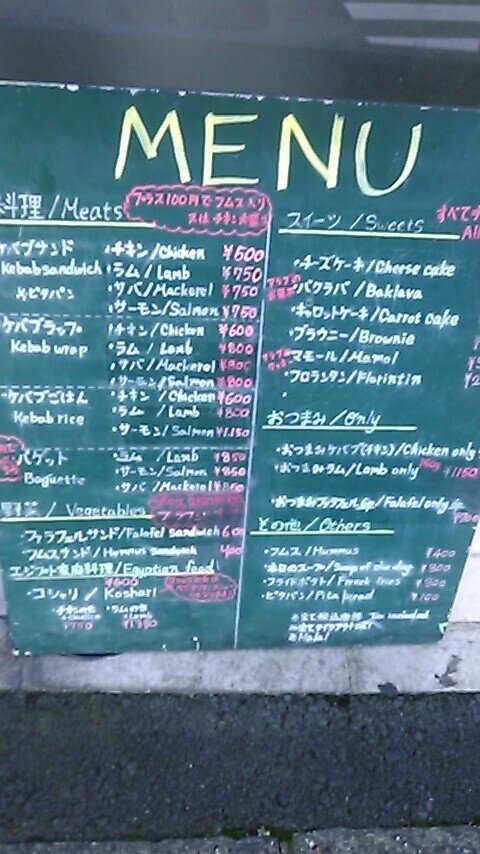 MENU
料理/Meats
プラス100円でフムス入り
ケバブサンド
Kebab sandwich
※ピタパン
・チキン/Chicken ¥500
・ラム/Lamb ¥750
・サバ/Mackerel ¥750
・サーモン/Salmon ¥750
ケバブラップ
Kebab wrap
・チキン/Chicken ¥600
・ラム/Lamb ¥800
・サバ/Mackerel ¥800
・サーモン/Salmon ¥800
ケバブごはん
Kebab rice
・チキン/Chicken ¥600
・ラム/Lamb ¥800
・サーモン/Salmon ¥1150
バゲット
Baguette
・ラム/Lamb ¥850
・サーモン/Salmon ¥850
・サバ/Mackerel
野菜/Vegetables
・ファラフェルサンド/Falafel sandwich 600
・フムスサンド/Hummus sandwich 400
エジプト家庭料理/Egyptian food
・コシャリ/Koshari ¥600
チキンのせ ラムのせ
スイーツ/Sweets
・チーズケーキ/Cheese cake
・バクラバ/Baklava
・キャロットケーキ/Carrot cake
・ブラウニー/Brownie
・マモール/Mamol
・フロランタン/Florintin
おつまみ/Only
・おつまみケバブ(チキン)/Chicken only
・おつまみラム/Lamb only ¥1150
・おつまみファラフェル6p/Falafel only 6p
その他/Others
・フムス/Hummus ¥400
・本日のスープ/Soup of the day ¥300
・フライドポテト/French fries ¥300
・ピタパン/Pita bread ¥100
※全て税込価格 Tax included
※Halal